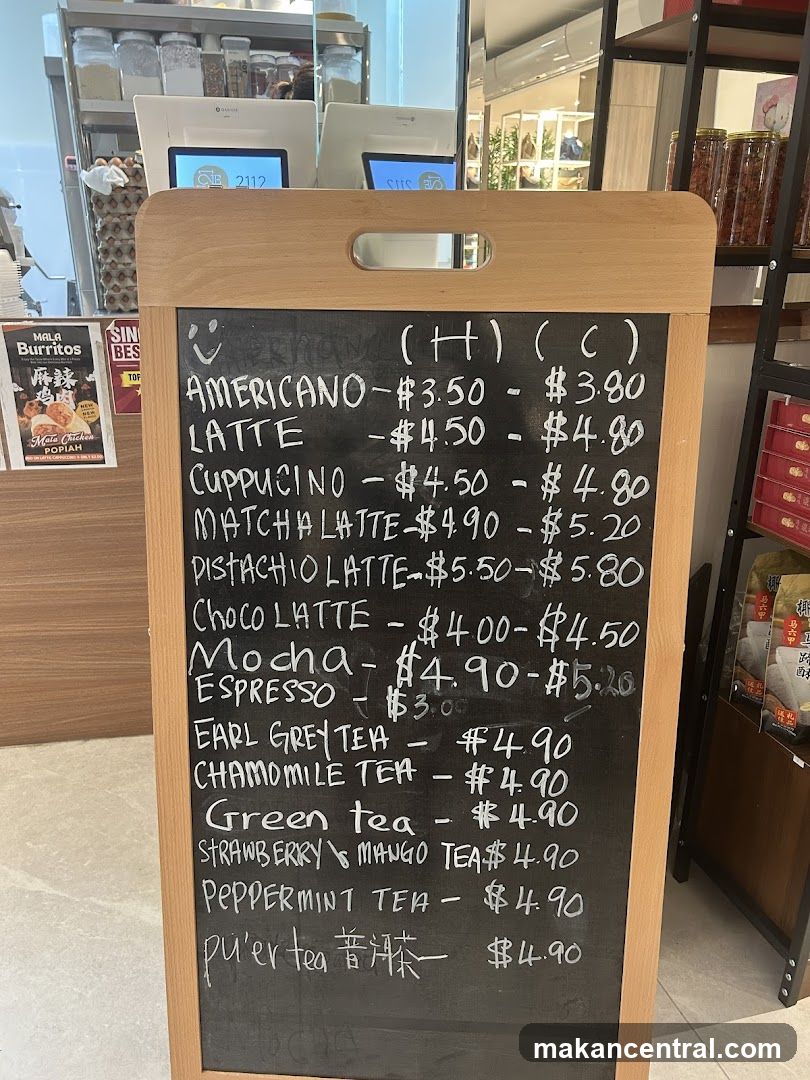 2112
MALA
Burritos
麻辣
鸡肉
Mala Chicken
POPIAH
SIN
BES
TOP
( H ) ( C )
AMERICANO - $3.50 - $3.80
LATTE - $4.50 - $4.80
CUPPUCINO - $4.50 - $4.80
MATCHA LATTE - $4.90 - $5.20
PISTACHIO LATTE - $5.50 - $5.80
CHOCO LATTE - $4.00 - $4.50
Mocha - $4.90 - $5.20
ESPRESSO - $3.00
EARL GREY TEA - $4.90
CHAMOMILE TEA - $4.90
Green tea - $4.90
STRAWBERRY \ MANGO TEA $4.90
PEPPERMINT TEA - $4.90
pu'er tea 普洱茶 - $4.90
马六甲
makancentral.com